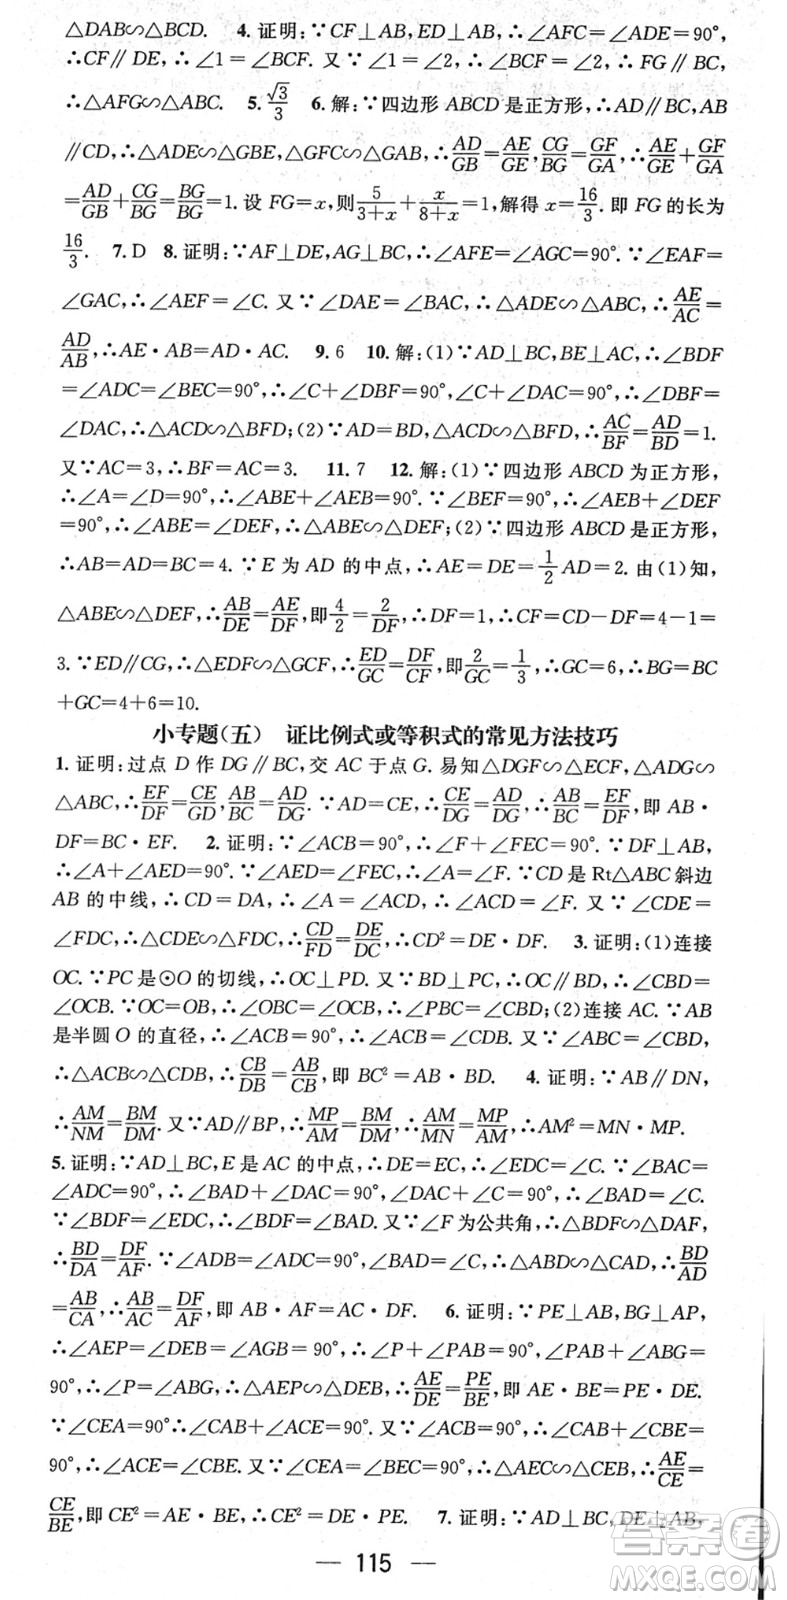 △DAB∽△BCD. 4. 证明:∵CF⊥AB,ED⊥AB,∴∠AFC=∠ADE=90°,
∴CF∥DE,∴∠1=∠BCF. 又∵∠1=∠2,∴∠BCF=∠2,∴FG∥BC,
∴△AFG∽△ABC. 5. √3/3 6. 解:∵四边形 ABCD 是正方形,∴AD∥BC,AB
∥CD,∴△ADE∽△GBE,△GFC∽△GAB,∴AD/GB=AE/GE,CG/BG=GF/GA,∴AE/GE+GF/GA
=AD/GB+CG/BG=BG/BG=1. 设 FG=x,则5/(3+x)+x/(8+x)=1,解得 x=16/3. 即 FG 的长为
16/3. 7. D 8. 证明:∵AF⊥DE,AG⊥BC,∴∠AFE=∠AGC=90°. ∵∠EAF=
∠GAC,∴∠AEF=∠C. 又∵∠DAE=∠BAC,∴△ADE∽△ABC,∴AE/AC=
AD/AB,∴AE·AB=AD·AC. 9. 6 10. 解:(1)∵AD⊥BC,BE⊥AC,∴∠BDF
=∠ADC=∠BEC=90°,∴∠C+∠DBF=90°,∠C+∠DAC=90°,∴∠DBF=
∠DAC,∴△ACD∽△BFD;(2)∵AD=BD,△ACD∽△BFD,∴AC/BF=AD/BD=1.
又∵AC=3,∴BF=AC=3. 11. 7 12. 解:(1)∵四边形 ABCD 为正方形,
∴∠A=∠D=90°,∴∠ABE+∠AEB=90°. ∵∠BEF=90°,∴∠AEB+∠DEF
=90°,∴∠ABE=∠DEF,∴△ABE∽△DEF;(2)∵四边形 ABCD 是正方形,
∴AB=AD=BC=4. ∵E 为 AD 的中点,∴AE=DE=1/2AD=2. 由(1)知,
△ABE∽△DEF,∴AB/DE=AE/DF,即4/2=2/DF,∴DF=1,∴CF=CD-DF=4-1=
3. ∵ED∥CG,∴△EDF∽△GCF,∴ED/GC=DF/CF,即2/GC=1/3,∴GC=6,∴BG=BC
+GC=4+6=10.
小专题(五) 证比例式或等积式的常见方法技巧
1. 证明:过点 D 作 DG∥BC,交 AC 于点 G. 易知△DGF∽△ECF,△ADG∽
△ABC,∴EF/DF=CE/GD,AB/BC=AD/DG. ∵AD=CE,∴CE/DG=AD/DG,∴AB/BC=EF/DF,即 AB·
DF=BC·EF. 2. 证明:∵∠ACB=90°,∴∠F+∠FEC=90°. ∵DF⊥AB,
∴∠A+∠AED=90°. ∵∠AED=∠FEC,∴∠A=∠F. ∵CD 是 Rt△ABC 斜边
AB 的中线,∴CD=DA,∴∠A=∠ACD,∴∠ACD=∠F. 又∵∠CDE=
∠FDC,∴△CDE∽△FDC,∴CD/FD=DE/DC,∴CD²=DE·DF. 3. 证明:(1)连接
OC. ∵PC 是⊙O 的切线,∴OC⊥PD. 又∵BD⊥PD,∴OC∥BD,∴∠CBD=
∠OCB. ∵OC=OB,∴∠OBC=∠OCB,∴∠PBC=∠CBD;(2)连接 AC. ∵AB
是半圆 O 的直径,∴∠ACB=90°,∴∠ACB=∠CDB. 又∵∠ABC=∠CBD,
∴△ACB∽△CDB,∴CB/DB=AB/CB,即 BC²=AB·BD. 4. 证明:∵AB∥DN,
∴AM/NM=BM/DM. 又∵AD∥BP,∴MP/AM=BM/DM,∴AM/MN=MP/AM,∴AM²=MN·MP.
5. 证明:∵AD⊥BC,E 是 AC 的中点,∴DE=EC,∴∠EDC=∠C. ∵∠BAC=
∠ADC=90°,∴∠BAD+∠DAC=90°,∠DAC+∠C=90°,∴∠BAD=∠C.
∵∠BDF=∠EDC,∴∠BDF=∠BAD. 又∵∠F 为公共角,∴△BDF∽△DAF,
∴BD/DA=DF/AF. ∵∠ADB=∠ADC=90°,∠BAD=∠C,∴△ABD∽△CAD,∴BD/AD
=AB/CA,∴AB/AC=DF/AF,即 AB·AF=AC·DF. 6. 证明:∵PE⊥AB,BG⊥AP,
∴∠AEP=∠DEB=∠AGB=90°,∴∠P+∠PAB=90°,∠PAB+∠ABG=
90°,∴∠P=∠ABG,∴△AEP∽△DEB,∴AE/DE=PE/BE,即 AE·BE=PE·DE.
∵∠CEA=90°∴∠CAB+∠ACE=90°. 又∵∠ACB=90°,∴∠CAB+∠CBE=
90°,∴∠ACE=∠CBE. 又∵∠CEA=∠BEC=90°,∴△AEC∽△CEB,∴AE/CE=
CE/BE,即 CE²=AE·BE,∴CE²=DE·PE. 7. 证明:∵AD⊥BC,DE⊥AB,
— 115 —
答案圈
MXQE.COM